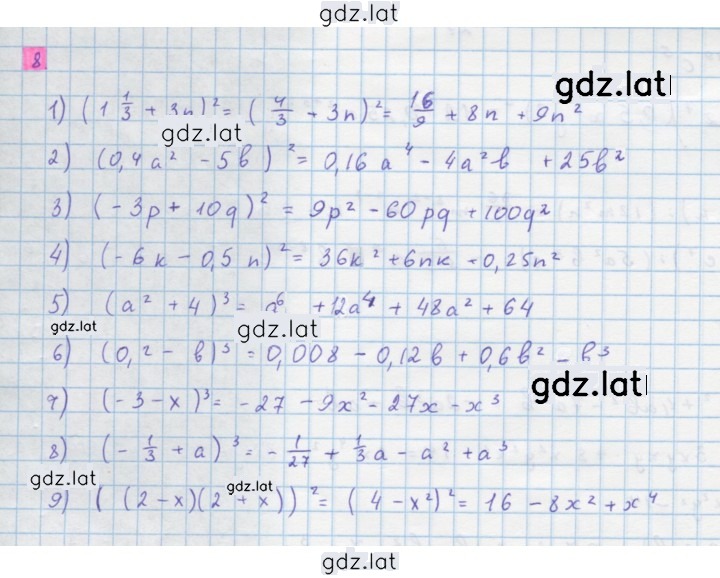 gdz.lat
8
gdz.lat
1) (1 1/3 + 3n)² = (4/3 + 3n)² = 16/9 + 8n + 9n²
gdz.lat
2) (0,4a² - 5в)² = 0,16a⁴ - 4a²в + 25в²
3) (-3p + 10q)² = 9p² - 60pq + 100q²
4) (-6к - 0,5n)² = 36к² + 6nк + 0,25n²
5) (a² + 4)³ = a⁶ + 12a⁴ + 48a² + 64
gdz.lat
gdz.lat
6) (0,2 - в)³ = 0,008 - 0,12в + 0,6в² - в³
gdz.lat
7) (-3 - x)³ = -27 - 9x² - 27x - x³
8) (-1/3 + a)³ = -1/27 + 1/3 a - a² + a³
gdz.lat
gdz.lat
9) ((2 - x)(2 + x))² = (4 - x²)² = 16 - 8x² + x⁴
gdz.lat